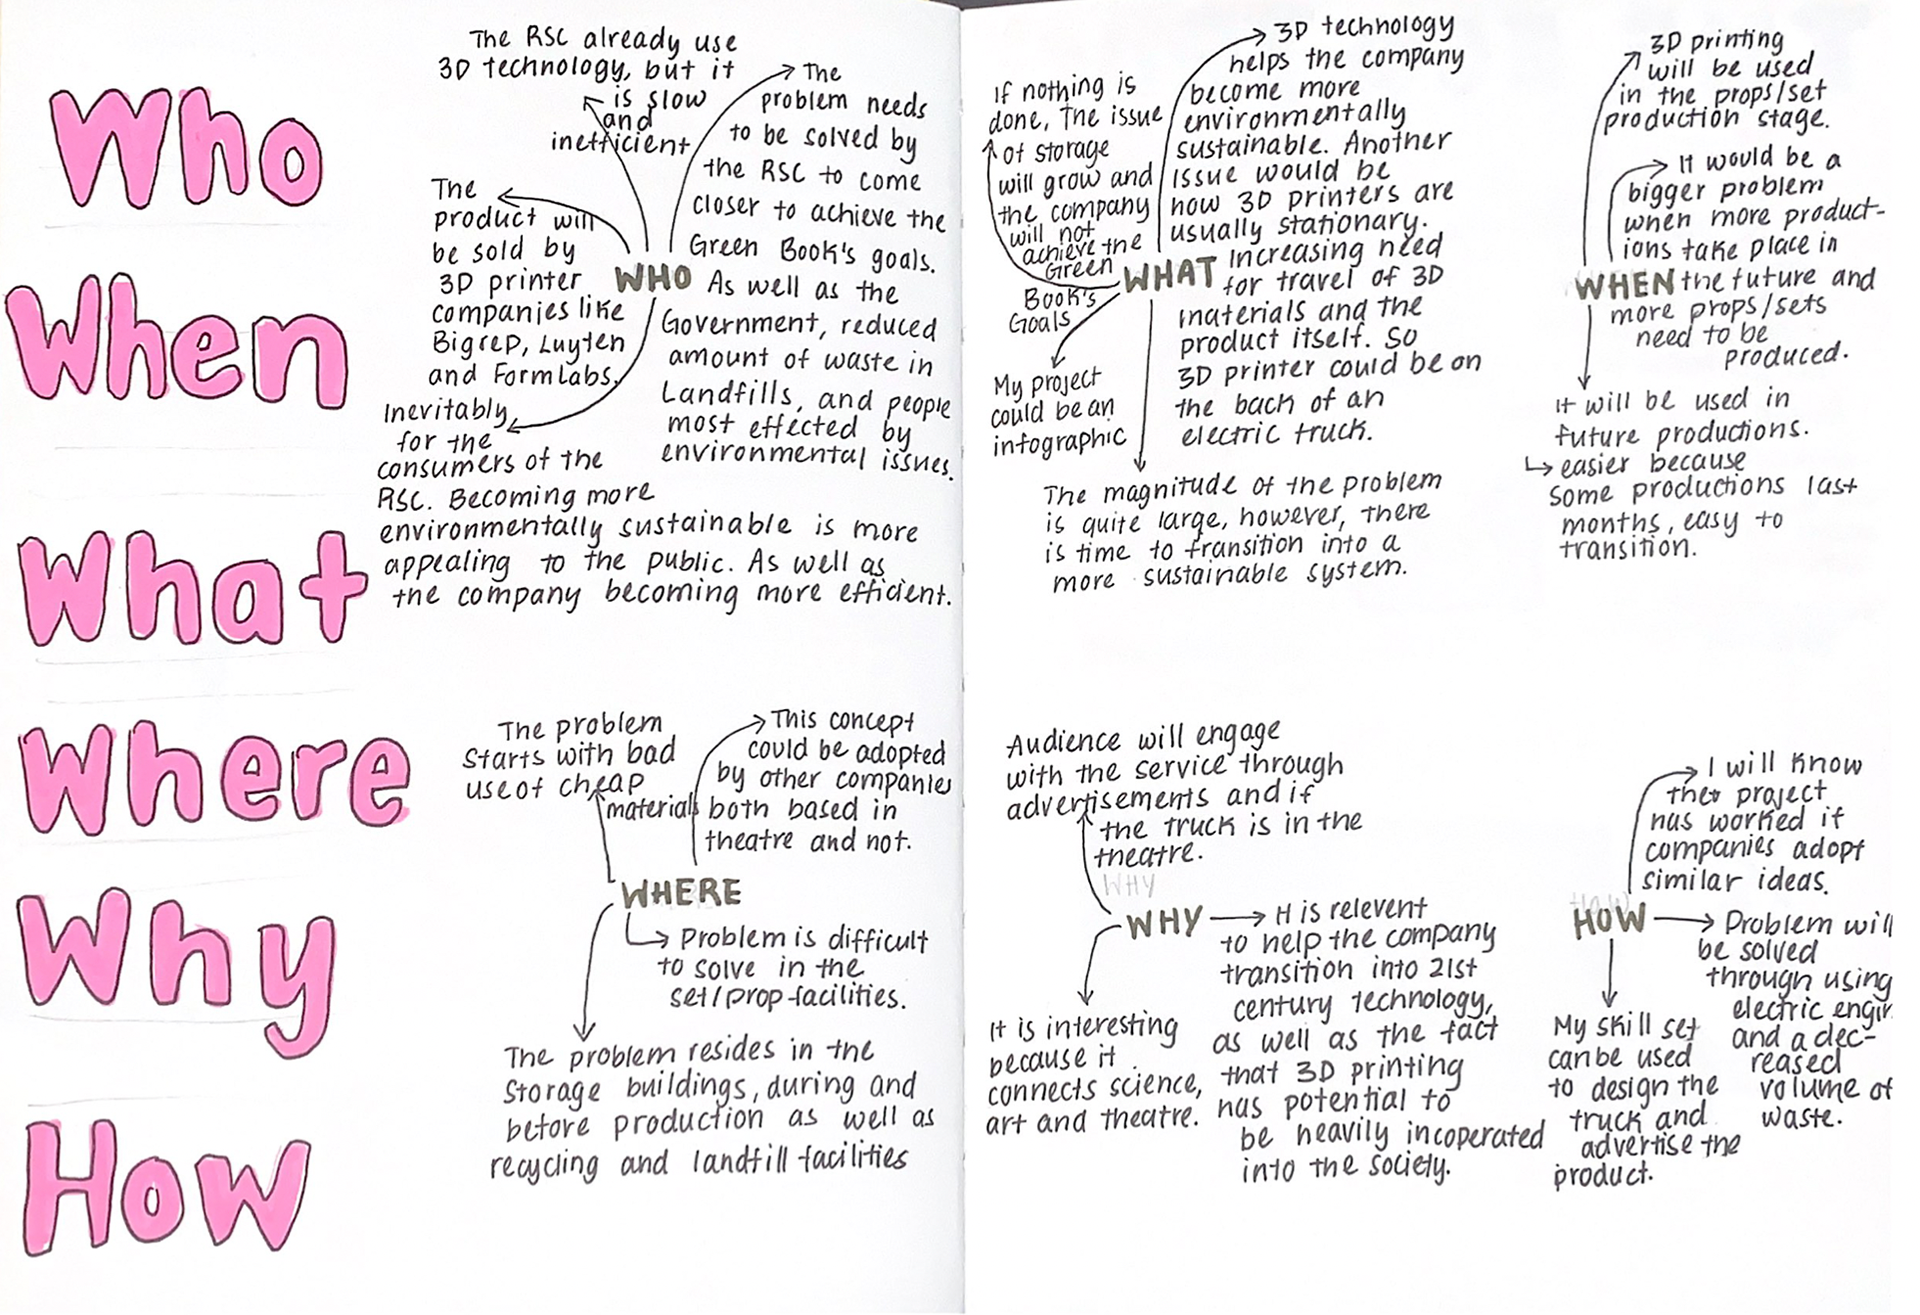 Who
When
What
Where
Why
How
The RSC already use
3D technology, but it
is slow
and
inefficient
The
problem needs
to be solved by
the RSC to come
closer to achieve the
Green Book's goals.
As well as the
Government, reduced
amount of waste in
Landfills, and people
most effected by
environmental issues.
The
product will
be sold by
3D printer
companies like
Bigrep, Luyten
and FormLabs.
WHO
Inevitably
for the
consumers of the
RSC. Becoming more
environmentally sustainable is more
appealing to the public. As well as
the company becoming more efficient.
If nothing is
done, The issue
of storage
will grow and
the company
will not
achieve the
Green
Book's
Goals
3D technology
helps the company
become more
environmentally
sustainable. Another
issue would be
how 3D printers are
usually stationary.
Increasing need
for travel of 3D
materials and the
product itself. So
3D printer could be on
the back of an
electric truck.
WHAT
My project
could be an
infographic
The magnitude of the problem
is quite large, however, there
is time to transition into a
more sustainable system.
3D printing
will be used
in the props/set
production stage.
It would be a
bigger problem
when more product-
ions take place in
the future and
more props/sets
need to be
produced.
WHEN
It will be used in
future productions.
↳ easier because
some productions last
months, easy to
transition.
The problem
starts with bad
use of cheap
materials
This concept
could be adopted
by other companies
both based in
theatre and not.
WHERE
Problem is difficult
to solve in the
set/prop facilities.
The problem resides in the
storage buildings, during and
before production as well as
recycling and landfill facilities
Audience will engage
with the service through
advertisements and if
the truck is in the
theatre.
WHY
WHY
It is relevent
to help the company
transition into 21st
century technology,
as well as the fact
that 3D printing
has potential to
be heavily incoperated
into the society.
It is interesting
because it
connects science,
art and theatre.
I will know
the project
has worked if
companies adopt
similar ideas.
HOW
HOW
Problem will
be solved
through using
electric
and a dec-
reased
volume of
waste.
My skill set
can be used
to design the
truck and
advertise the
product.